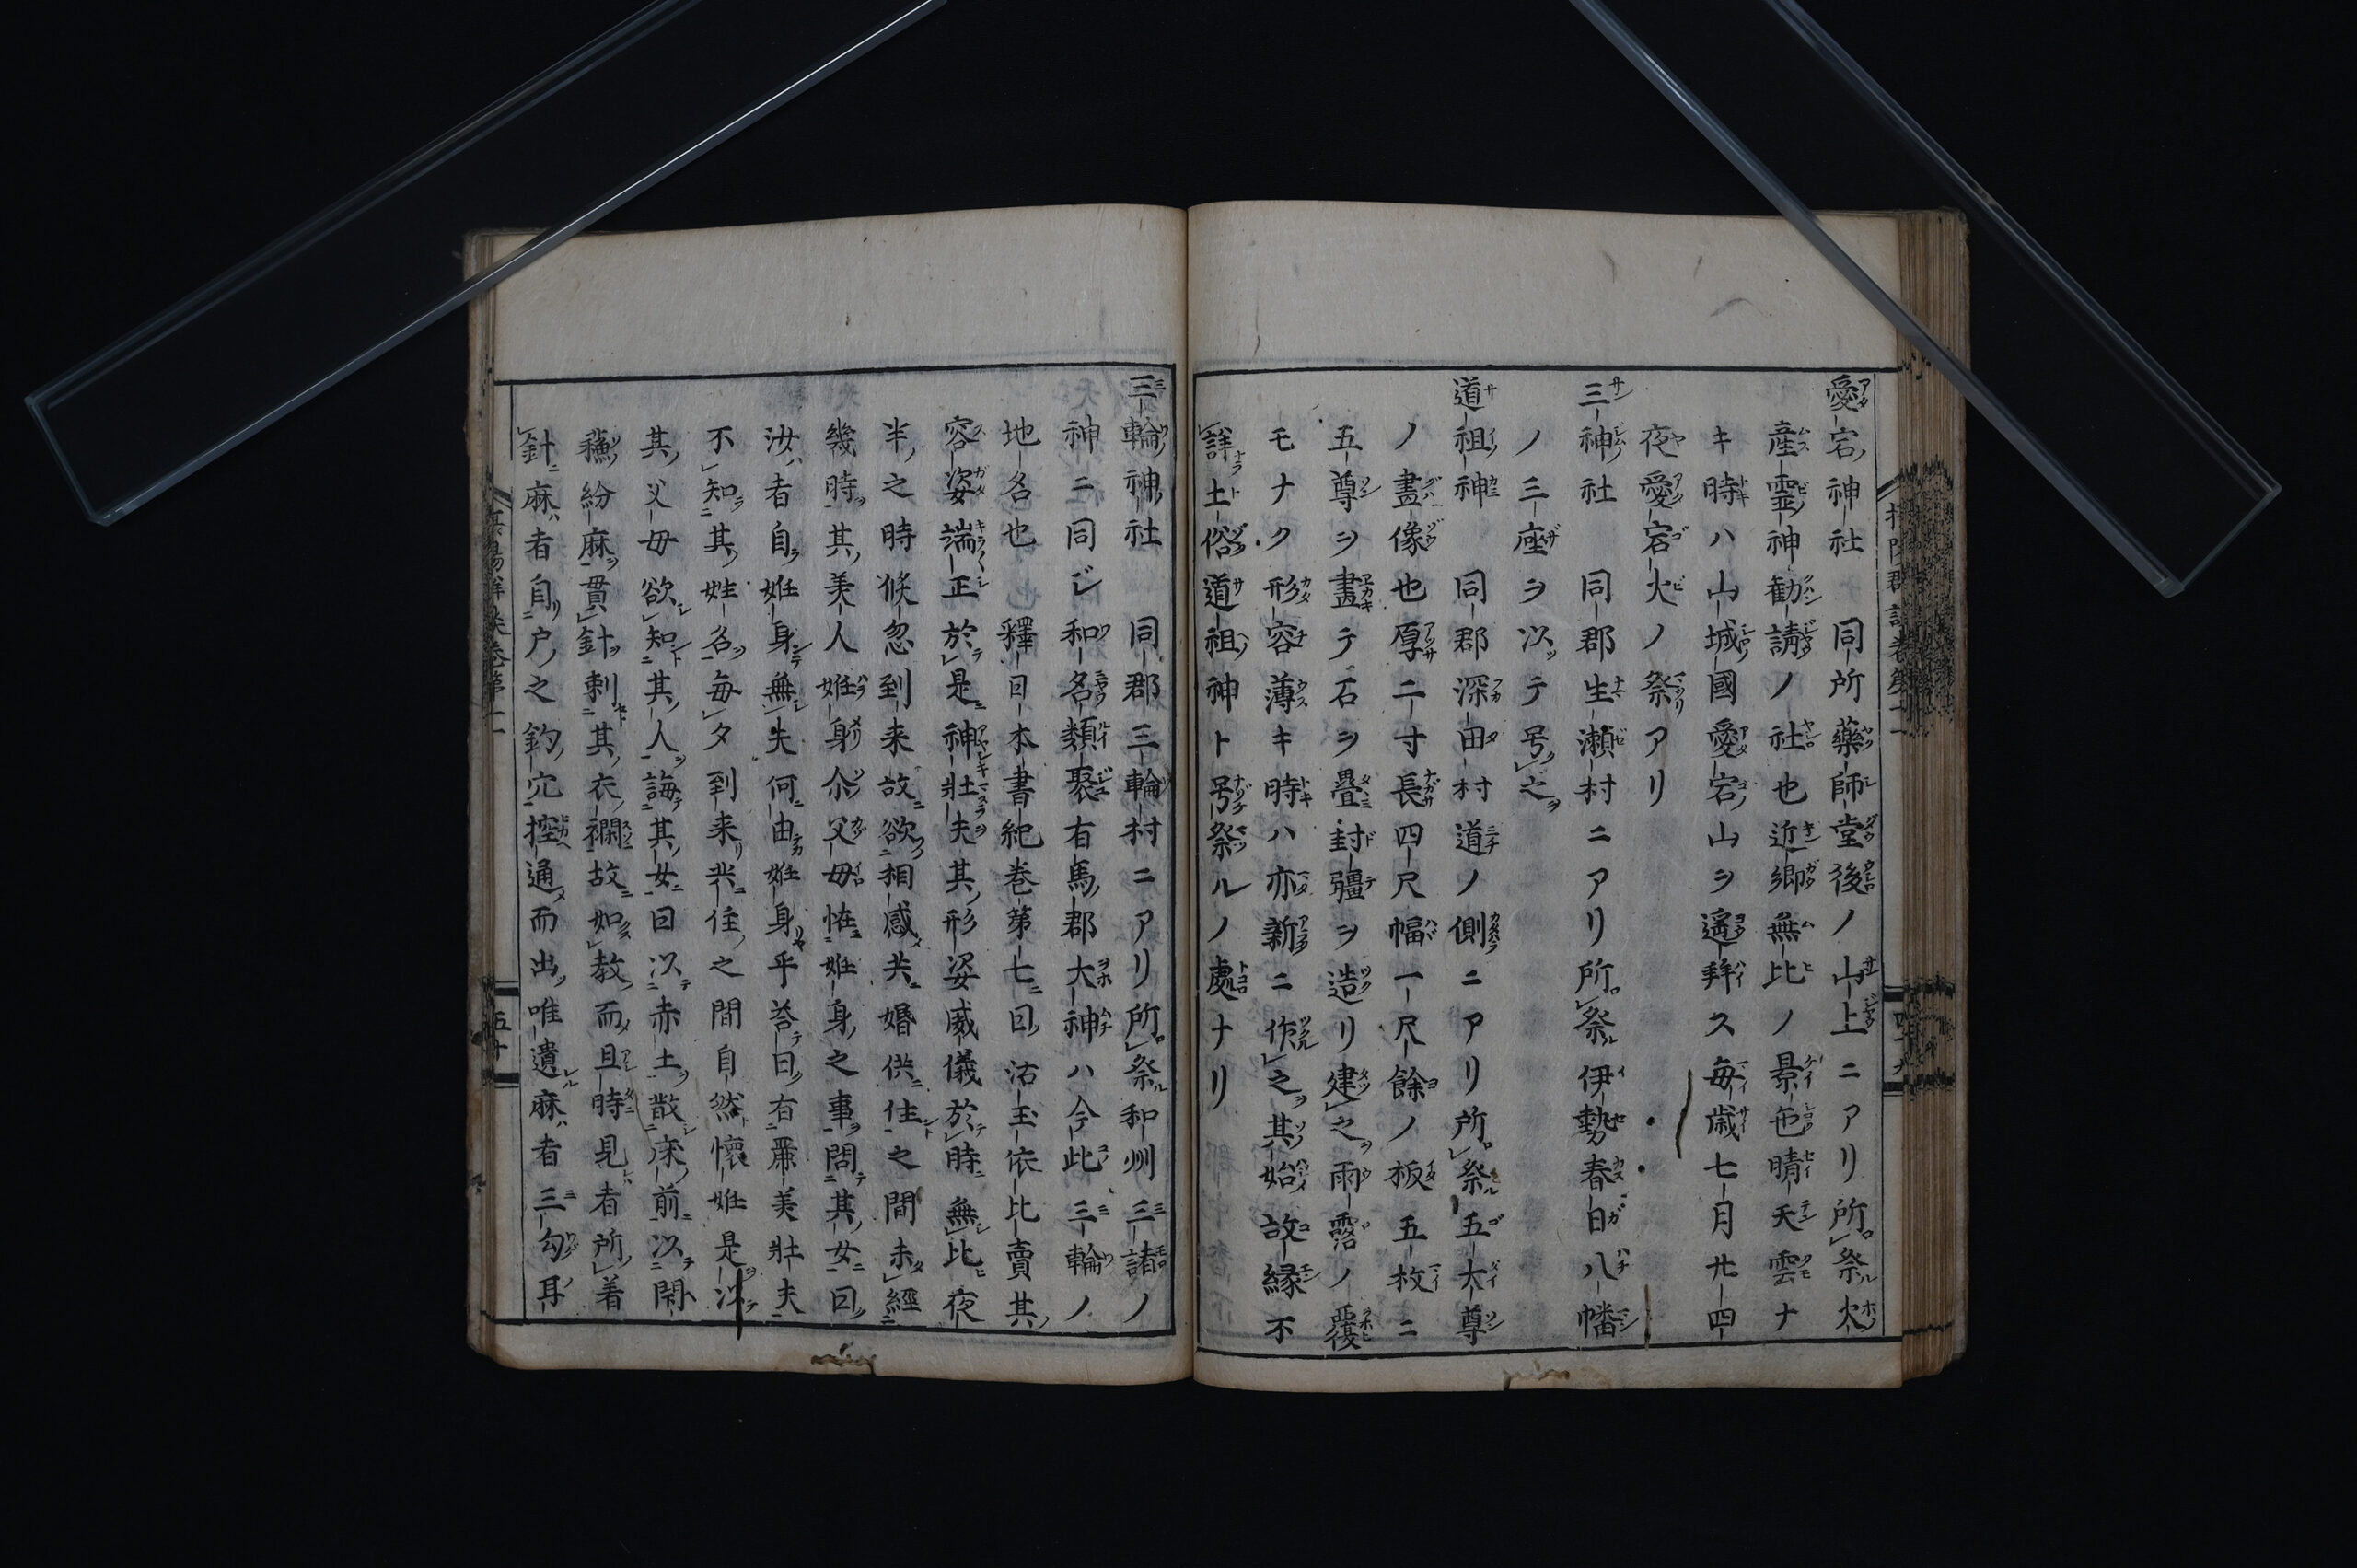 愛宕神社　同所藥師堂後ノ山上ニアリ所祭火
産霊神勧請ノ社也近郷無比ノ景色晴天雲ナ
キ時ハ山城國愛宕山ヲ遙拜ス毎歳七月廿四
夜愛宕火ノ祭アリ
三神社　同郡生瀬村ニアリ所祭伊勢春日八幡
ノ三座ヲ以テ号之
道祖神　同郡深田村道ノ側ニアリ所祭五大尊
ノ畫像也厚二寸長四尺幅一尺餘ノ板五枚ニ
五尊ヲ畫テ石ヲ疊封彊ヲ造リ建之雨露ノ覆
モナク形容薄キ時ハ亦新ニ作之其始故縁不
詳土俗道祖神ト号祭ルノ處ナリ
三輪神社　同郡三輪村ニアリ所祭和州三諸ノ
神ニ同ジ和名類聚有馬郡大神ハ今此三輪ノ
地名也　釋日本書紀巻第七曰活玉依比賣其
容姿端正於是神壯夫其形姿威儀於時無比夜
半之時倏忽到来故欲相感共婚供住之間未經
幾時其美人妊身尒父母恠妊身之事問其女曰
汝者自妊身無夫何由妊身乎荅曰有麗美壯夫
不知其姓名毎夕到来共住之間自然懐妊是以
其父母欲知其人誨其女曰以赤土散床前以閇
蘓紛麻貫針刺其衣襴故如教而旦時見者所着
針麻者自戸之鈎穴控通而出唯遺麻者三勾耳
五十